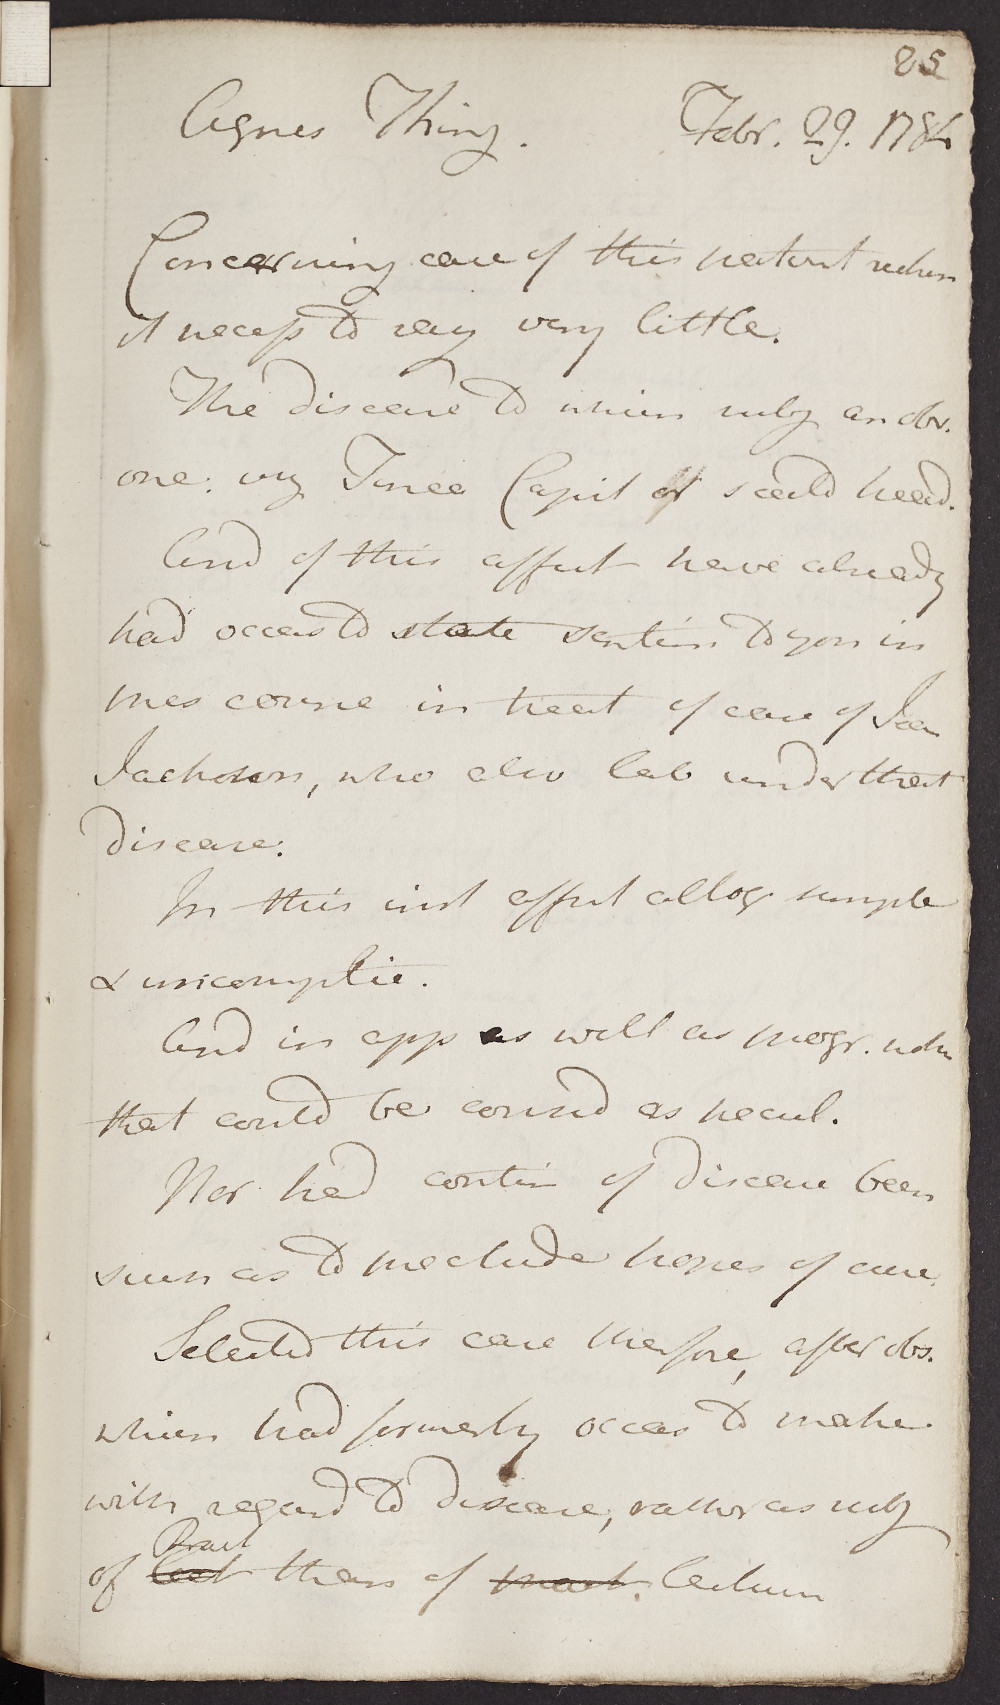 85
Agnes Thing. Febr. 29. 1784
Concerning case of this patient
it necess to say very little.
The disease to which subj an obv.
one. viz Tinea Capit or scald head.
And of this affect have already
had occas to state sentim to you in
course in treat of case of
Jackson, who also lab under that
disease.
In this inst affect altog simple
& uncomplic.
And in app as well as progr.
that could be consid as pecul.
Nor had contin of disease been
such as to preclude hopes of cure.
Selected this case therefore, after obs.
which had formerly occas to make
with regard to disease, rather as subj
of Pract than of Lecture